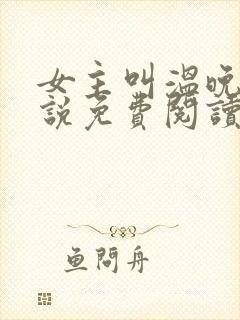 女主叫溫晚
說免費閱讀
鱼問舟